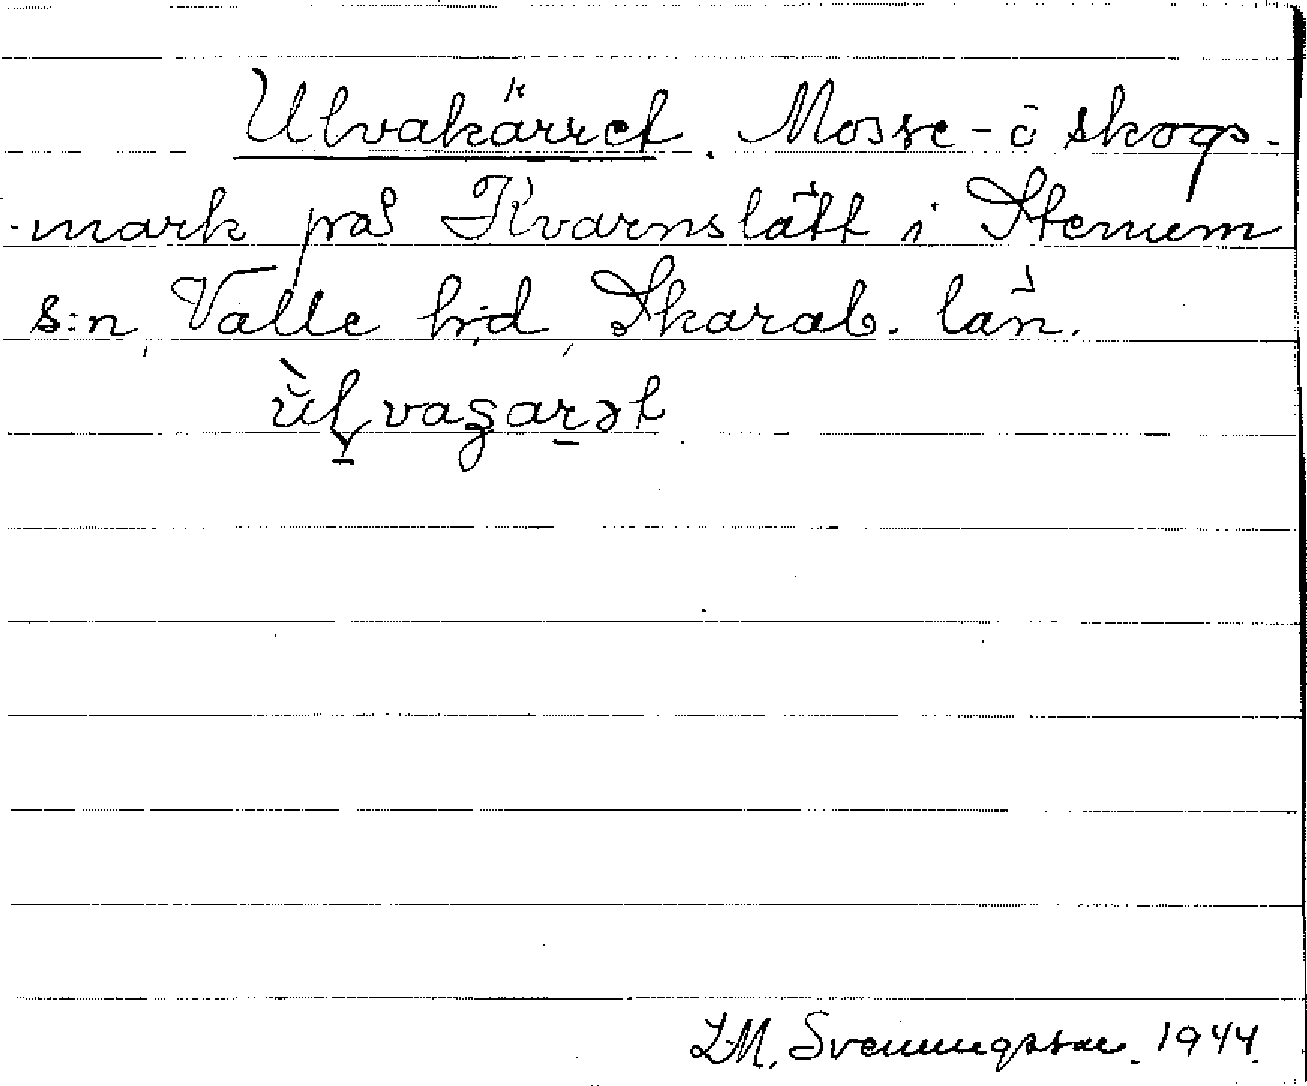 Ulvakärret. Mosse- ö skogs-
-mark på Kvarnslätt i Stenum
s:n, Valle h:d, Skarab. län.
L M. Svenningsson. 1944.